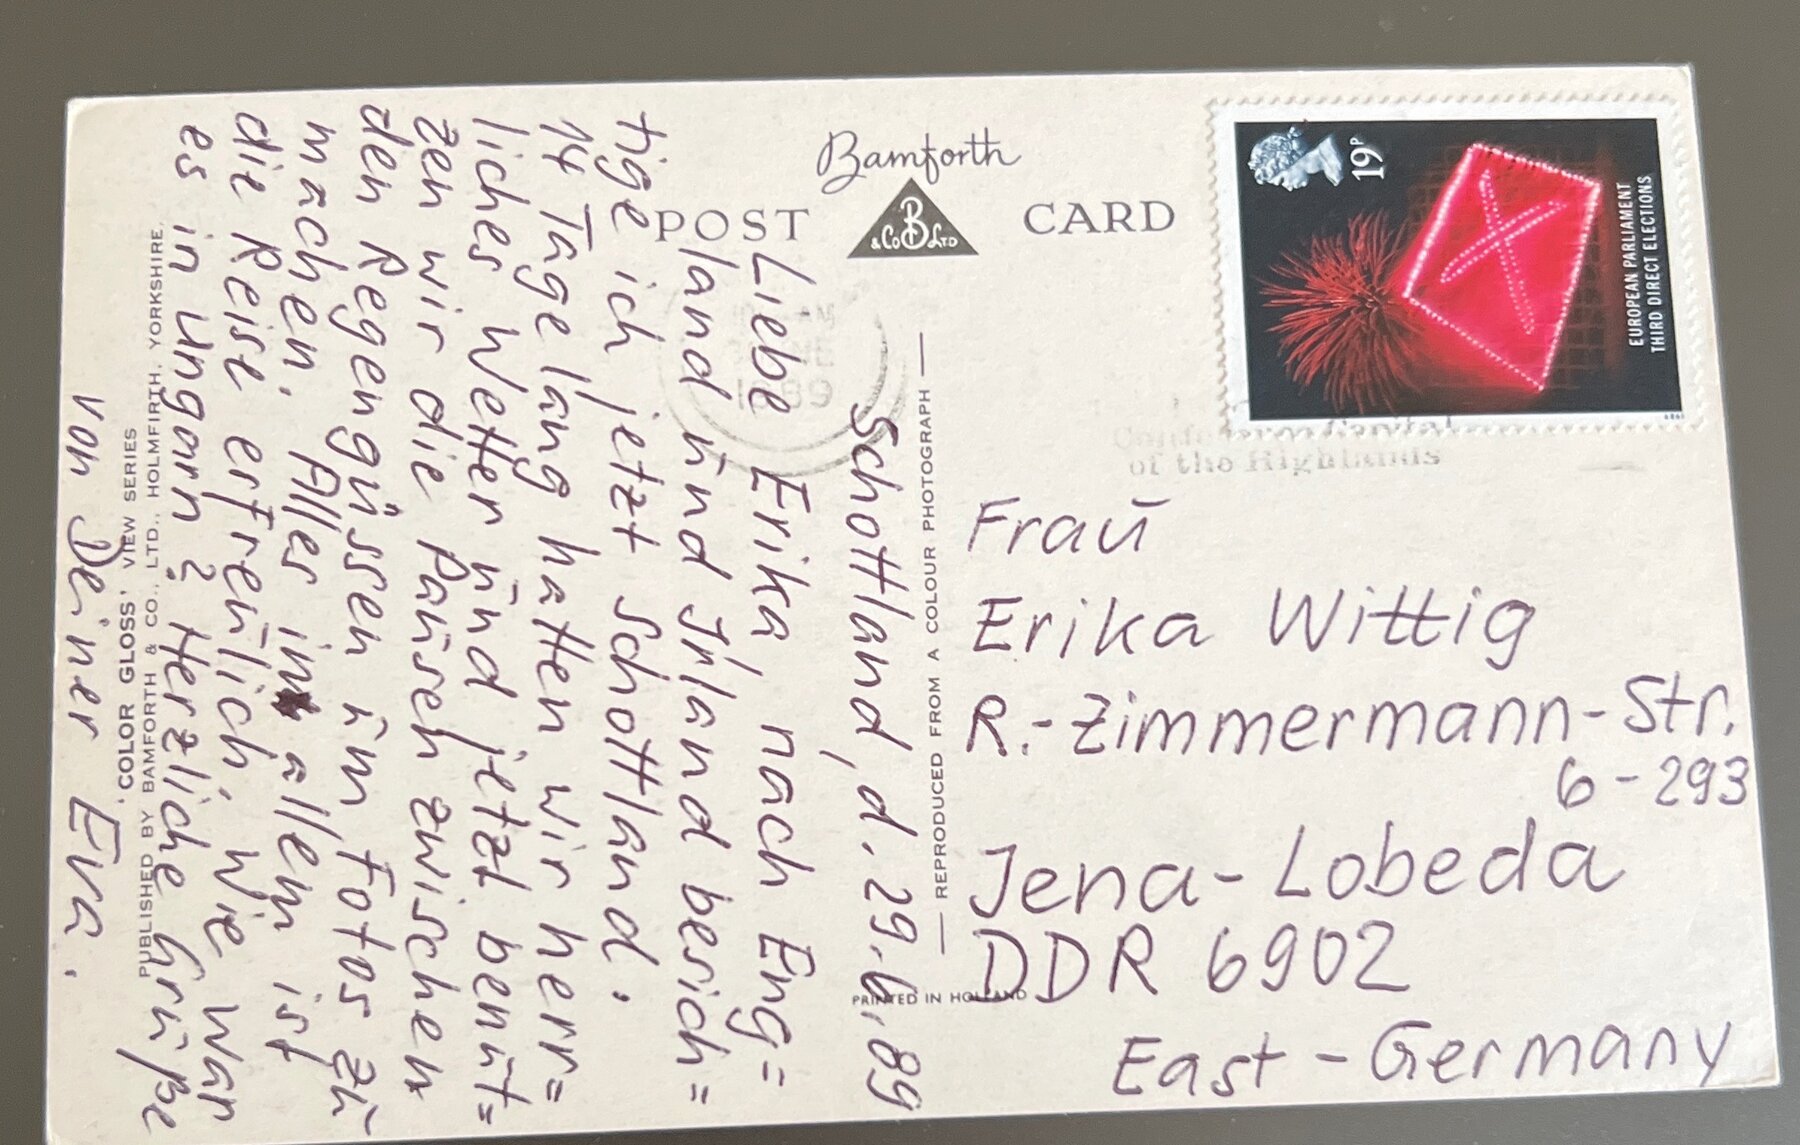 Bamforth
POST CARD
& Co B LTD
19P
EUROPEAN PARLIAMENT
THIRD DIRECT ELECTIONS
1989
of the Highlands
Schottland, d. 29.6.89
Liebe Erika, nach Eng=
land und Irland besich=
tige ich jetzt Schottland.
14 Tage lang hatten wir herr=
liches Wetter und jetzt benut=
zen wir die Pausen zwischen
den Regengüssen um Fotos zu
machen. Alles in allem ist
die Reise erfreulich. Wie war
es in Ungarn? Herzliche Grüße
von Deiner Eva.
Frau
Erika Wittig
R.-Zimmermann-Str.
6-293
Jena-Lobeda
DDR 6902
East-Germany
REPRODUCED FROM A COLOUR PHOTOGRAPH
PRINTED IN HOLLAND
'COLOR GLOSS' VIEW SERIES
PUBLISHED BY BAMFORTH & CO., LTD., HOLMFIRTH, YORKSHIRE.